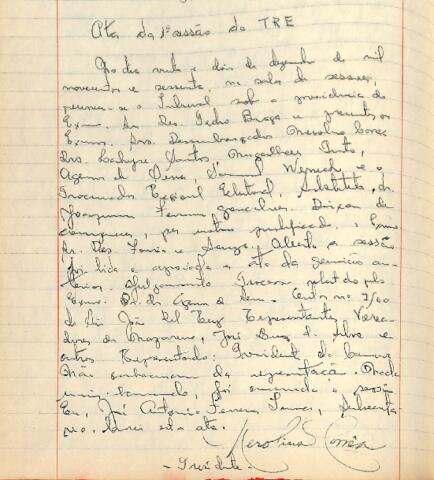 Ata da 1ª sessão do TRE
Ao dia vinte e dois de dezembro de mil
novecentos e sessenta, na sala de sessões,
reuniu-se o Tribunal sob a presidência do
Exmo. Sr. Des. Pedro Braga e presentes os
Exmos. Srs. Desembargador Merolino Corrêa
Drs. Santos, Magalhães Pinto,
Agenor de Sena, Samuel Werneck e o
Procurador Regional Eleitoral, Substituto, dr.
Joaquim Ferreira Gonçalves. Deixou de
comparecer, por motivo justificado, o Exmo
Sr. Des. Faria e Souza. Aberta a sessão
foi lida e aprovada a ata da reunião an-
terior. Julgamento Processo relatado pelo
Exmo. Sr. Dr. Agenor de Sena.
de São João del Rey Representantes, Verea-
dores de José da Silva e
outros Representado: Presidente da Camara
Não conheceram da representação. Nada
mais havendo, foi encerrada a sessão
Eu, José Antonio Ferreira
lavrei esta ata.
Merolino Corrêa
- Presidente -